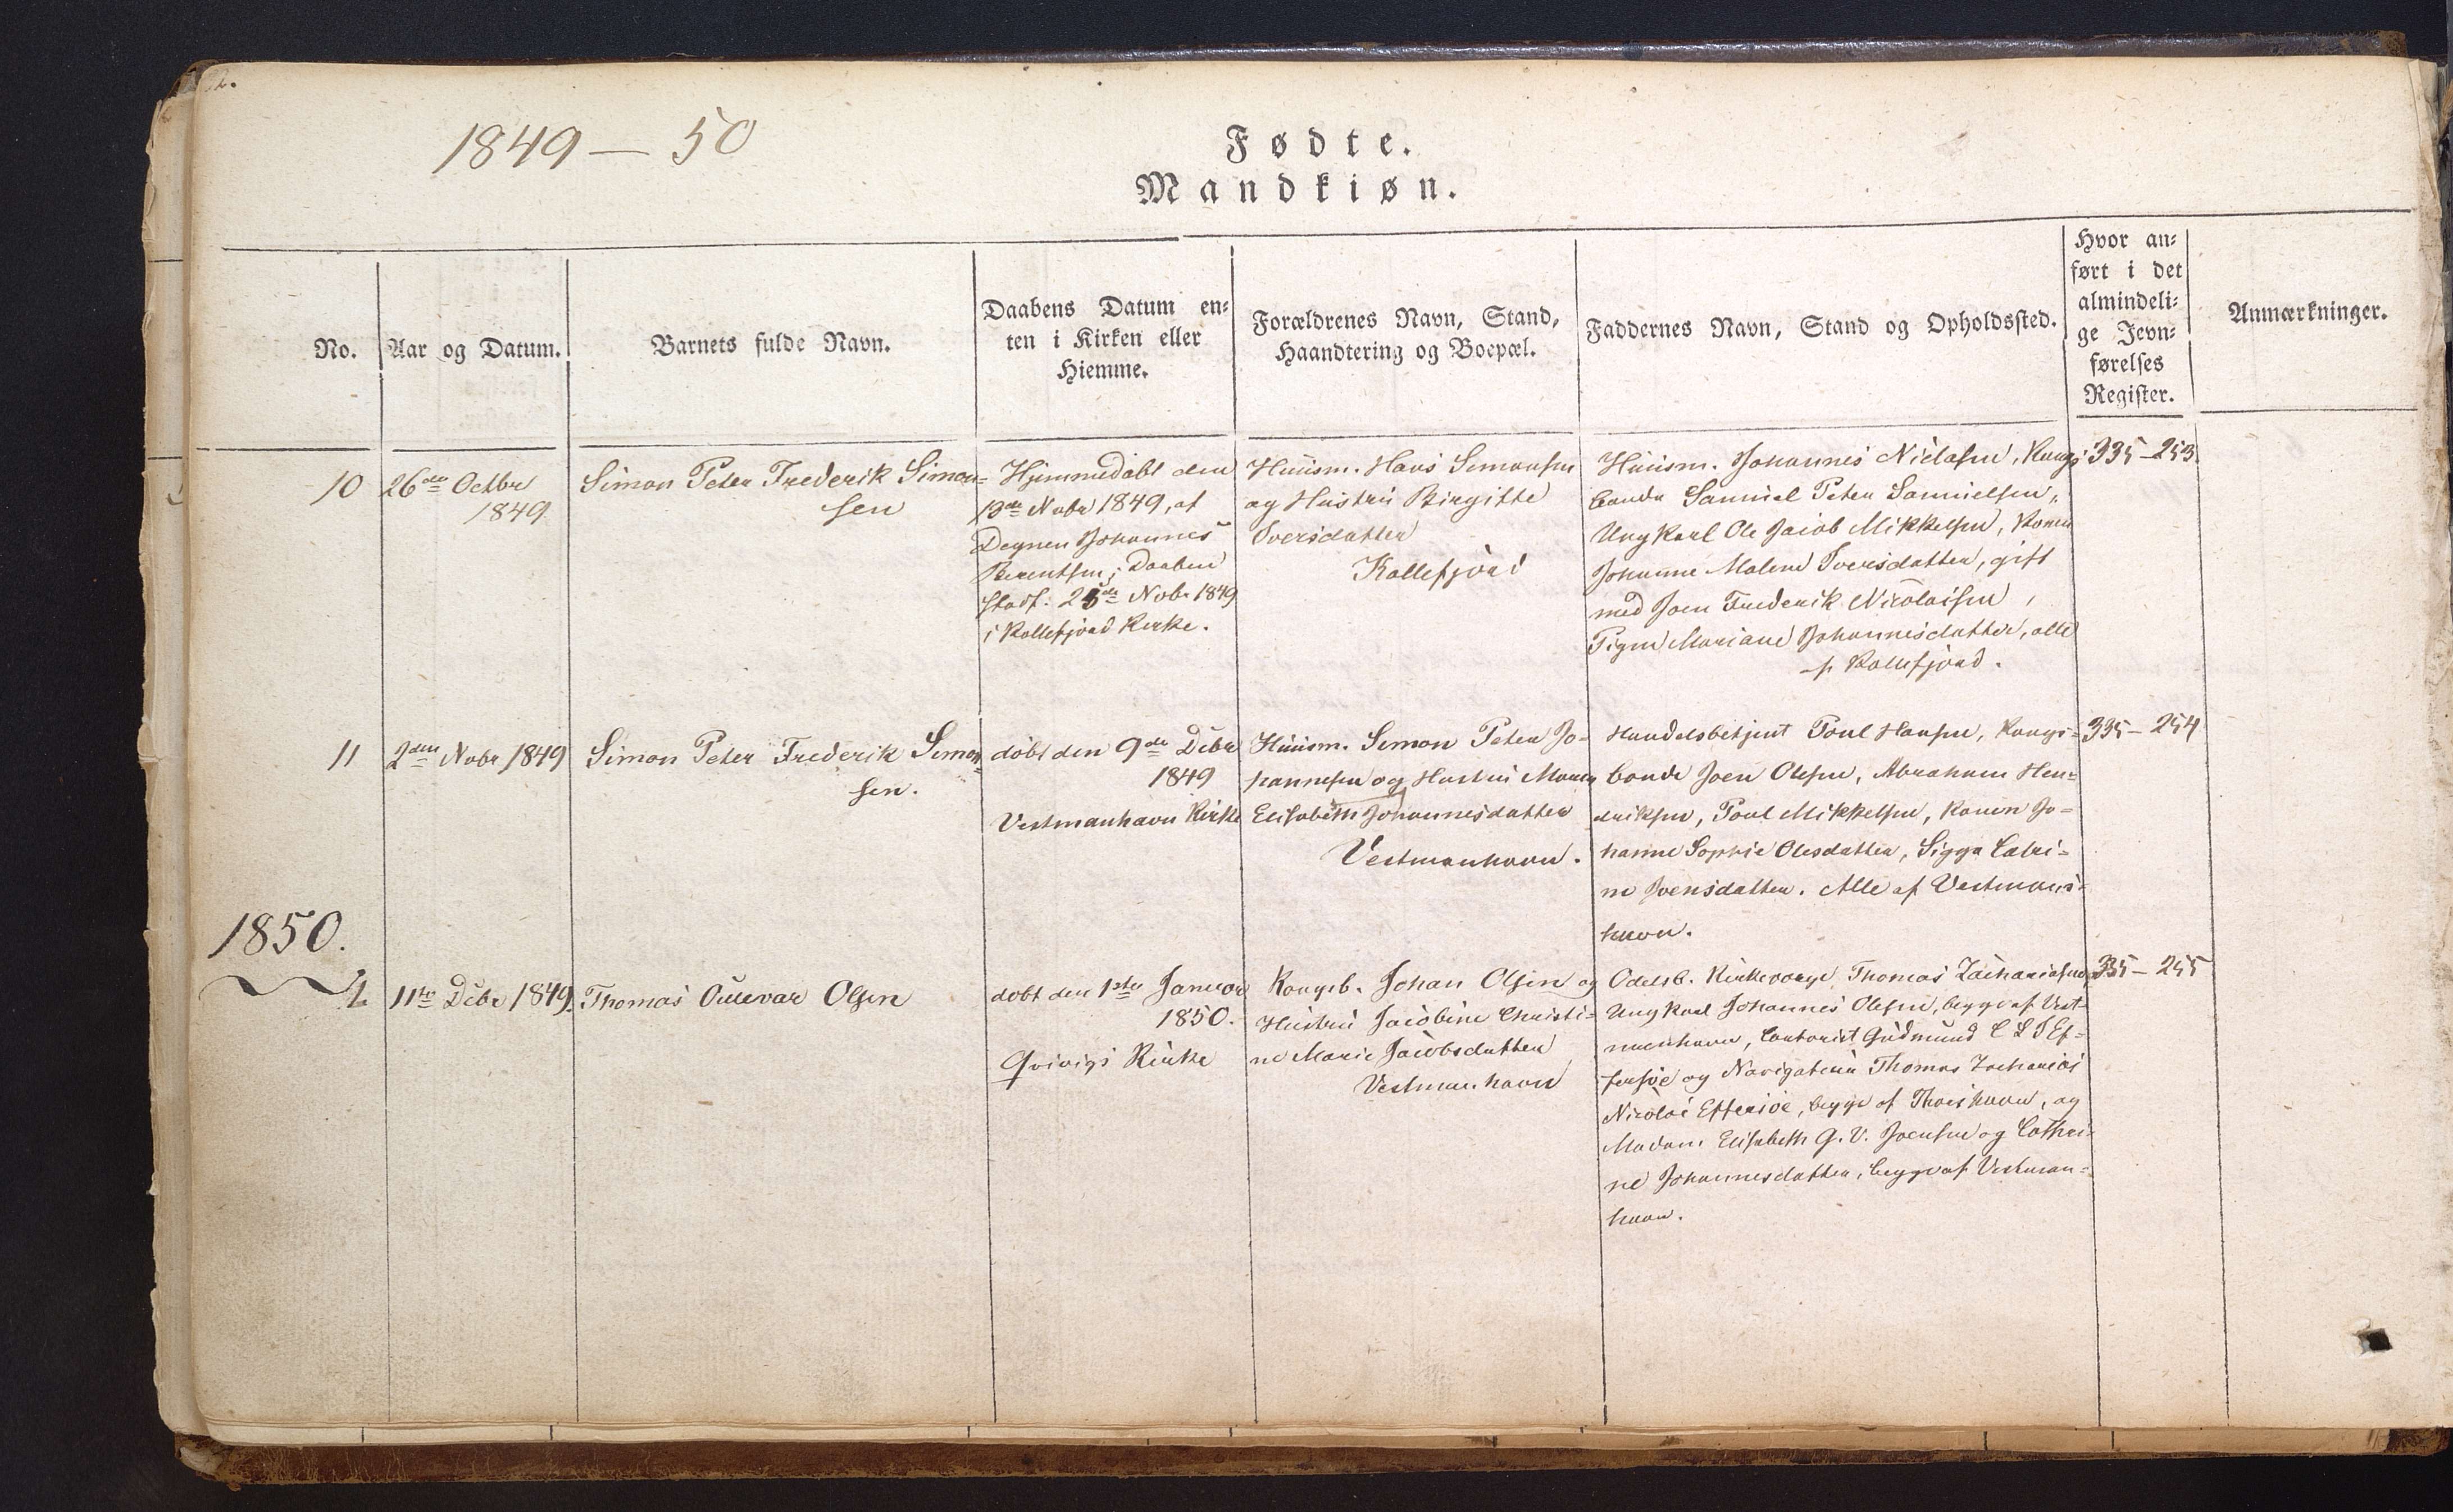 2.
1849 — 50
Fødte.
Mandkiøn.
No.
Aar og Datum.
Barnets fulde Navn.
Daabens Datum en=
ten i Kirken eller
Hiemme.
Forældrenes Navn, Stand,
Haandtering og Boepæl.
Faddernes Navn, Stand og Opholdssted.
Hvor an=
ført i det
almindeli=
ge Jevn=
førelses
Register.
Anmærkninger.
10
26de Octbr
1849
Simon Peter Frederik Simon=
sen
Hjemmedøbt den
13de Nobr 1849, af
Degnen Johannes
Berentsen; Daaben
stadf. 25de Nobr 1849
i Kollefjord Kirke.
Huusm. Hans Simonsen
og Hustru Birgitte
Iversdatter
Kollefjord
Huusm. Johannes Niclasen, Kongs
bonde Samuel Peter Samuelsen,
Ungkarl Ole Jacob Mikkelsen, Konen
Johanne Malene Iversdatter, gift
med Joen Frederik Nicolaisen,
Pigen Mariane Johannesdatter, alle
af Kollefjord.
335–253
11
2den Nobr 1849
Simon Peter Frederik Simon=
sen.
døbt den 9de Decbr
1849
Vestmanhavn Kirke
Huusm. Simon Peter Jo-
hannesen og Hustru Maren
Elisabeth Johannesdatter
Vestmanhavn.
Handelsbetjent Poul Hansen, Kongs=
bonde Joen Olesen, Abraham Hen=
driksen, Poul Mikkelsen, Konen Jo=
hanne Sophie Olesdatter, Sigga Catri=
ne Joensdatter. Alle af Vestmans=
havn.
335–254
1850.
1
11te Decbr 1849.
Thomas Ollevar Olsen
døbt den 1ste Januar
1850.
Qvivigs Kirke
Kongsb. Johan Olsen og
Hustru Jacobine Christi=
ne Marie Jacobsdatter
Vestmanhavn
Odelsb. Kirkeværge Thomas Zachariasen,
Ungkarl Johannes Olesen, begge af Vest-
manhavn, Contorist Gudmund C L I Ef=
fersøe og Navigateur Thomas Zacharias
Nicolai Effersøe, begge af Thorshavn, og
Madam Elisabeth G. V. Joensen og Cathri=
ne Johannesdatter, begge af Vestman=
havn.
335–255